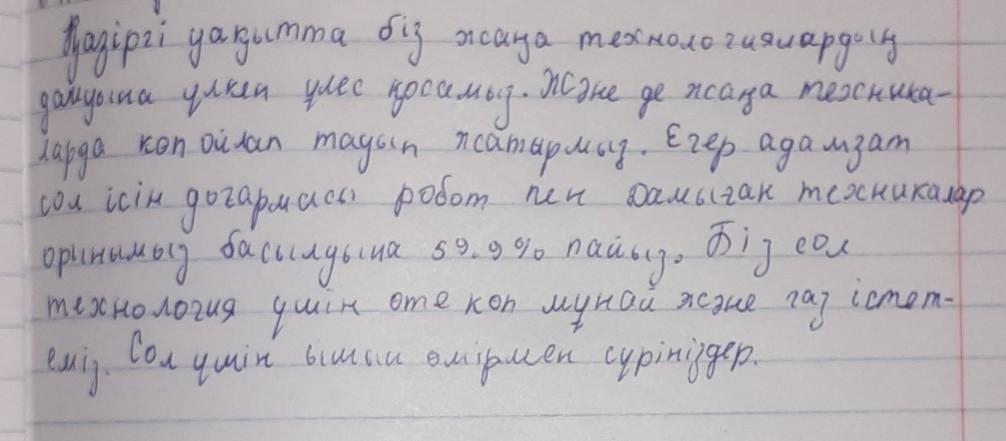 Қазіргі уақытта біз жаңа технологиялардың
дамуына үлкен үлес қосамыз. Және де жаңа техника-
ларда коп ойлап тауып жатырмыз. Егер адамзат
сол ісін доғармасы робот пен дамыған техникалар
орынымыз басылуына 59.9% пайыз. Біз сол
технология үшін оте коп мұнай және газ істет-
еміз. Сол үшін омірмен сүріңіздер.